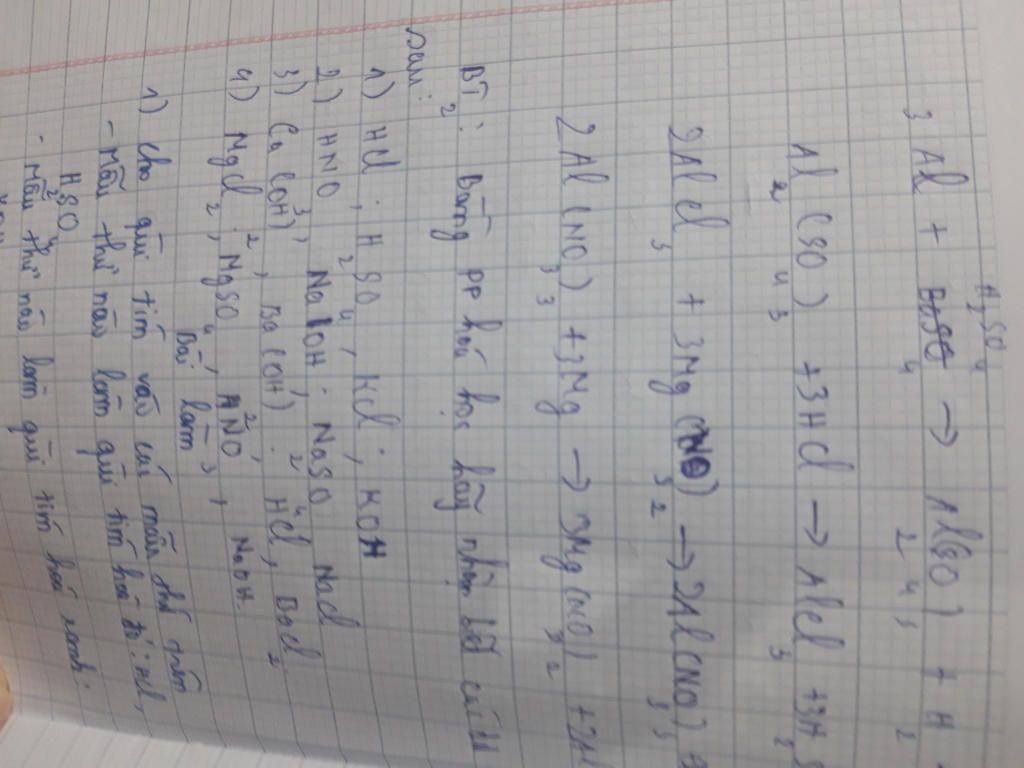 H2SO4
3 Al + → Al2(SO4)3 + H2
Al2(SO4)3 + 3HCl → AlCl3 + 3H2S
2AlCl3 + 3Mg(NO3)2 → 2Al(NO3)3
2Al(NO3)3 + 3Mg → 3Mg(NO3)2 + 2Al
BT2: Bằng pp hoá học hãy nhận biết các
sau:
1) HCl; H2SO4; KCl; KOH
2) HNO3, NaOH, NaSO4 NaCl
3) Ca(OH)2, Ba(OH)2, HCl, BaCl2
4) MgCl2, MgSO4, NaOH.
Bài làm
1) Cho quì tím vào các mẫu thử trên
- Mẫu thử nào làm quì tím hoá đỏ: HCl,
H2SO4
- Mẫu thử nào làm quì tím hoá xanh:
KOH